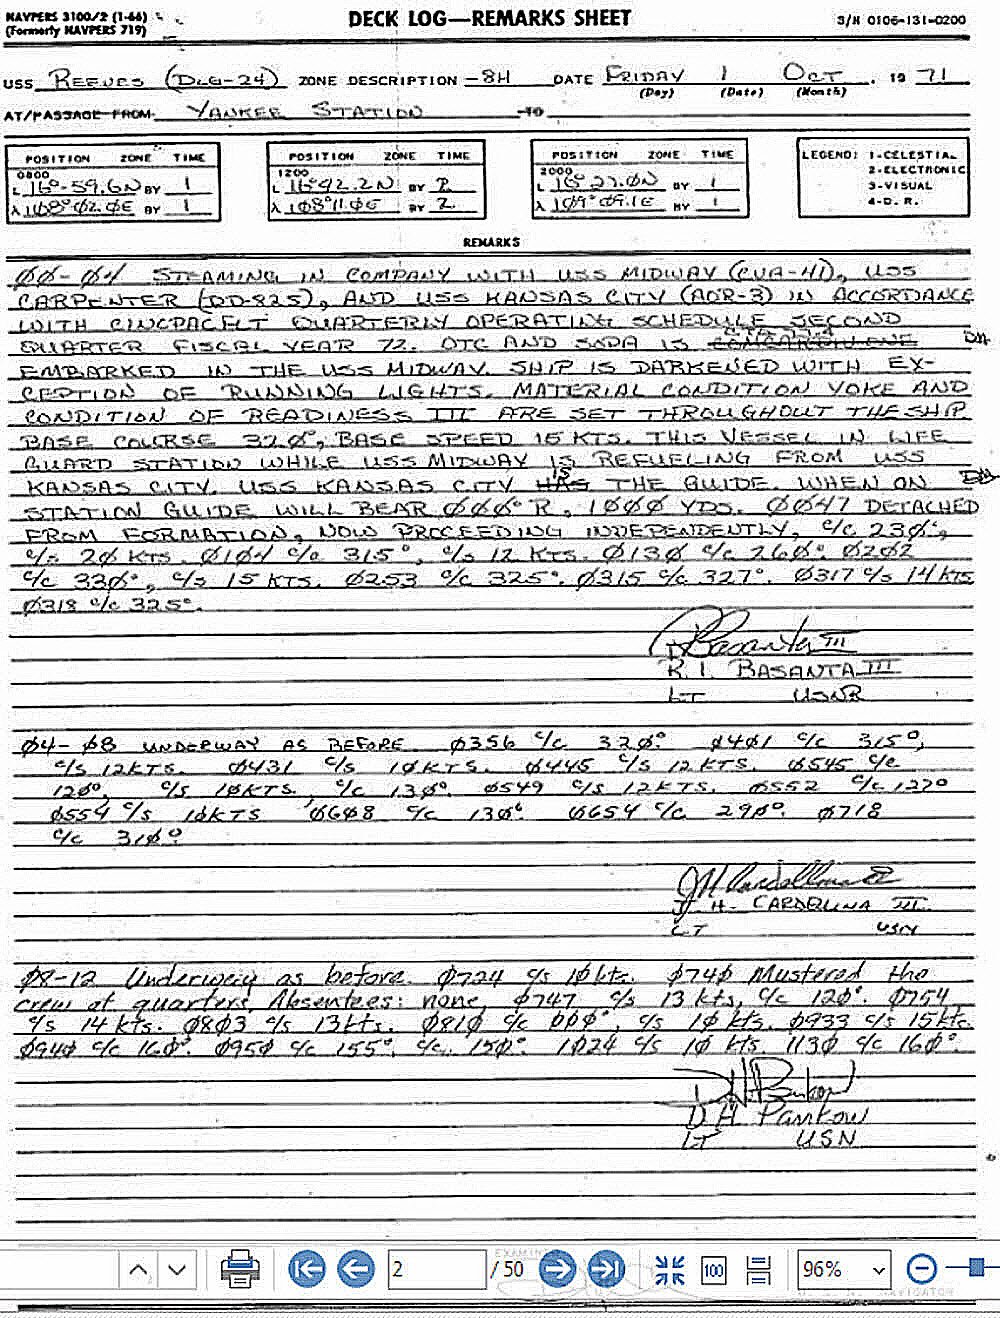 NAVPERS 3100/2 (1-66)
(Formerly NAVPERS 719)
DECK LOG—REMARKS SHEET
S/N 0106-131-0200
USS REEVES (DLG-24) ZONE DESCRIPTION -8H DATE FRIDAY 1 OCT. 19 71
(Day) (Date) (Month)
AT/PASSAGE FROM YANKEE STATION TO
POSITION ZONE TIME
0800
L 16°-59.6N BY 1
λ 108°02.0E BY 1
POSITION ZONE TIME
1200
L 16°42.2N BY 2
λ 108°11.0E BY 2
POSITION ZONE TIME
2000
L 16° 27.0N BY 1
λ 109° 09.1E BY 1
LEGEND: 1-CELESTIAL
2-ELECTRONIC
3-VISUAL
4-D. R.
REMARKS
ØØ-Ø4 STEAMING IN COMPANY WITH USS MIDWAY (CVA-41), USS
CARPENTER (DD-825), AND USS KANSAS CITY (AOR-3) IN ACCORDANCE
WITH CINCPACFLT QUARTERLY OPERATING SCHEDULE SECOND
QUARTER FISCAL YEAR 72. OTC AND SOPA IS
EMBARKED IN THE USS MIDWAY. SHIP IS DARKENED WITH EX-
CEPTION OF RUNNING LIGHTS. MATERIAL CONDITION YOKE AND
CONDITION OF READINESS III ARE SET THROUGHOUT THE SHIP.
BASE COURSE 32Ø°, BASE SPEED 15 KTS. THIS VESSEL IN LIFE
GUARD STATION WHILE USS MIDWAY IS REFUELING FROM USS
KANSAS CITY. USS KANSAS CITY HAS IS THE GUIDE. WHEN ON
STATION GUIDE WILL BEAR ØØØ° R, 1ØØØ YDS. ØØ47 DETACHED
FROM FORMATION, NOW PROCEEDING INDEPENDENTLY, C/C 23Ø°,
C/S 2Ø KTS. Ø1Ø4 C/C 315°, C/S 12 KTS. Ø13Ø C/C 26Ø°. Ø2Ø2
C/C 33Ø°, C/S 15 KTS. Ø253 C/C 325°. Ø315 C/C 327°. Ø317 C/S 14 KTS
Ø318 C/C 325°.
R. I. BASANTA III
LT USNR
Ø4-Ø8 UNDERWAY AS BEFORE. Ø356 C/C 32Ø°. Ø4Ø1 C/C 315°,
C/S 12KTS. Ø431 C/S 1ØKTS. Ø445 C/S 12KTS. Ø545 C/C
12Ø°, C/S 1ØKTS, C/C 13Ø°. Ø549 C/S 12KTS. Ø552 C/C 127°
Ø554 C/S 1ØKTS Ø6Ø8 C/C 13Ø°. Ø654 C/C 29Ø°. Ø718
C/C 31Ø°.
J. H. CARDELLINA III
LT USN
Ø8-12 Underway as before. Ø724 c/s 1Ø kts. Ø74Ø Mustered the
crew at quarters, Absentees: none, Ø747 c/s 13 kts, c/c 12Ø°. Ø754
c/s 14 kts. Ø8Ø3 c/s 13kts. Ø81Ø c/c ØØØ°, c/s 1Ø kts. Ø933 c/s 15kts.
Ø94Ø c/c 16Ø°. Ø95Ø c/c 155°, c/c 15Ø°. 1Ø24 c/s 1Ø kts. 113Ø c/c 16Ø°.
D. H. Pankow
LT USN
2 / 50
100
96%
NAVIGATOR